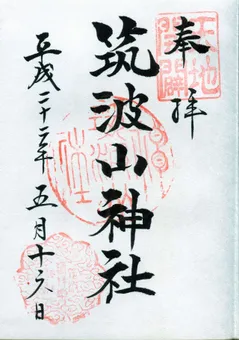 天地開闢
奉拝
筑波山神社
平成二十二年五月十六日